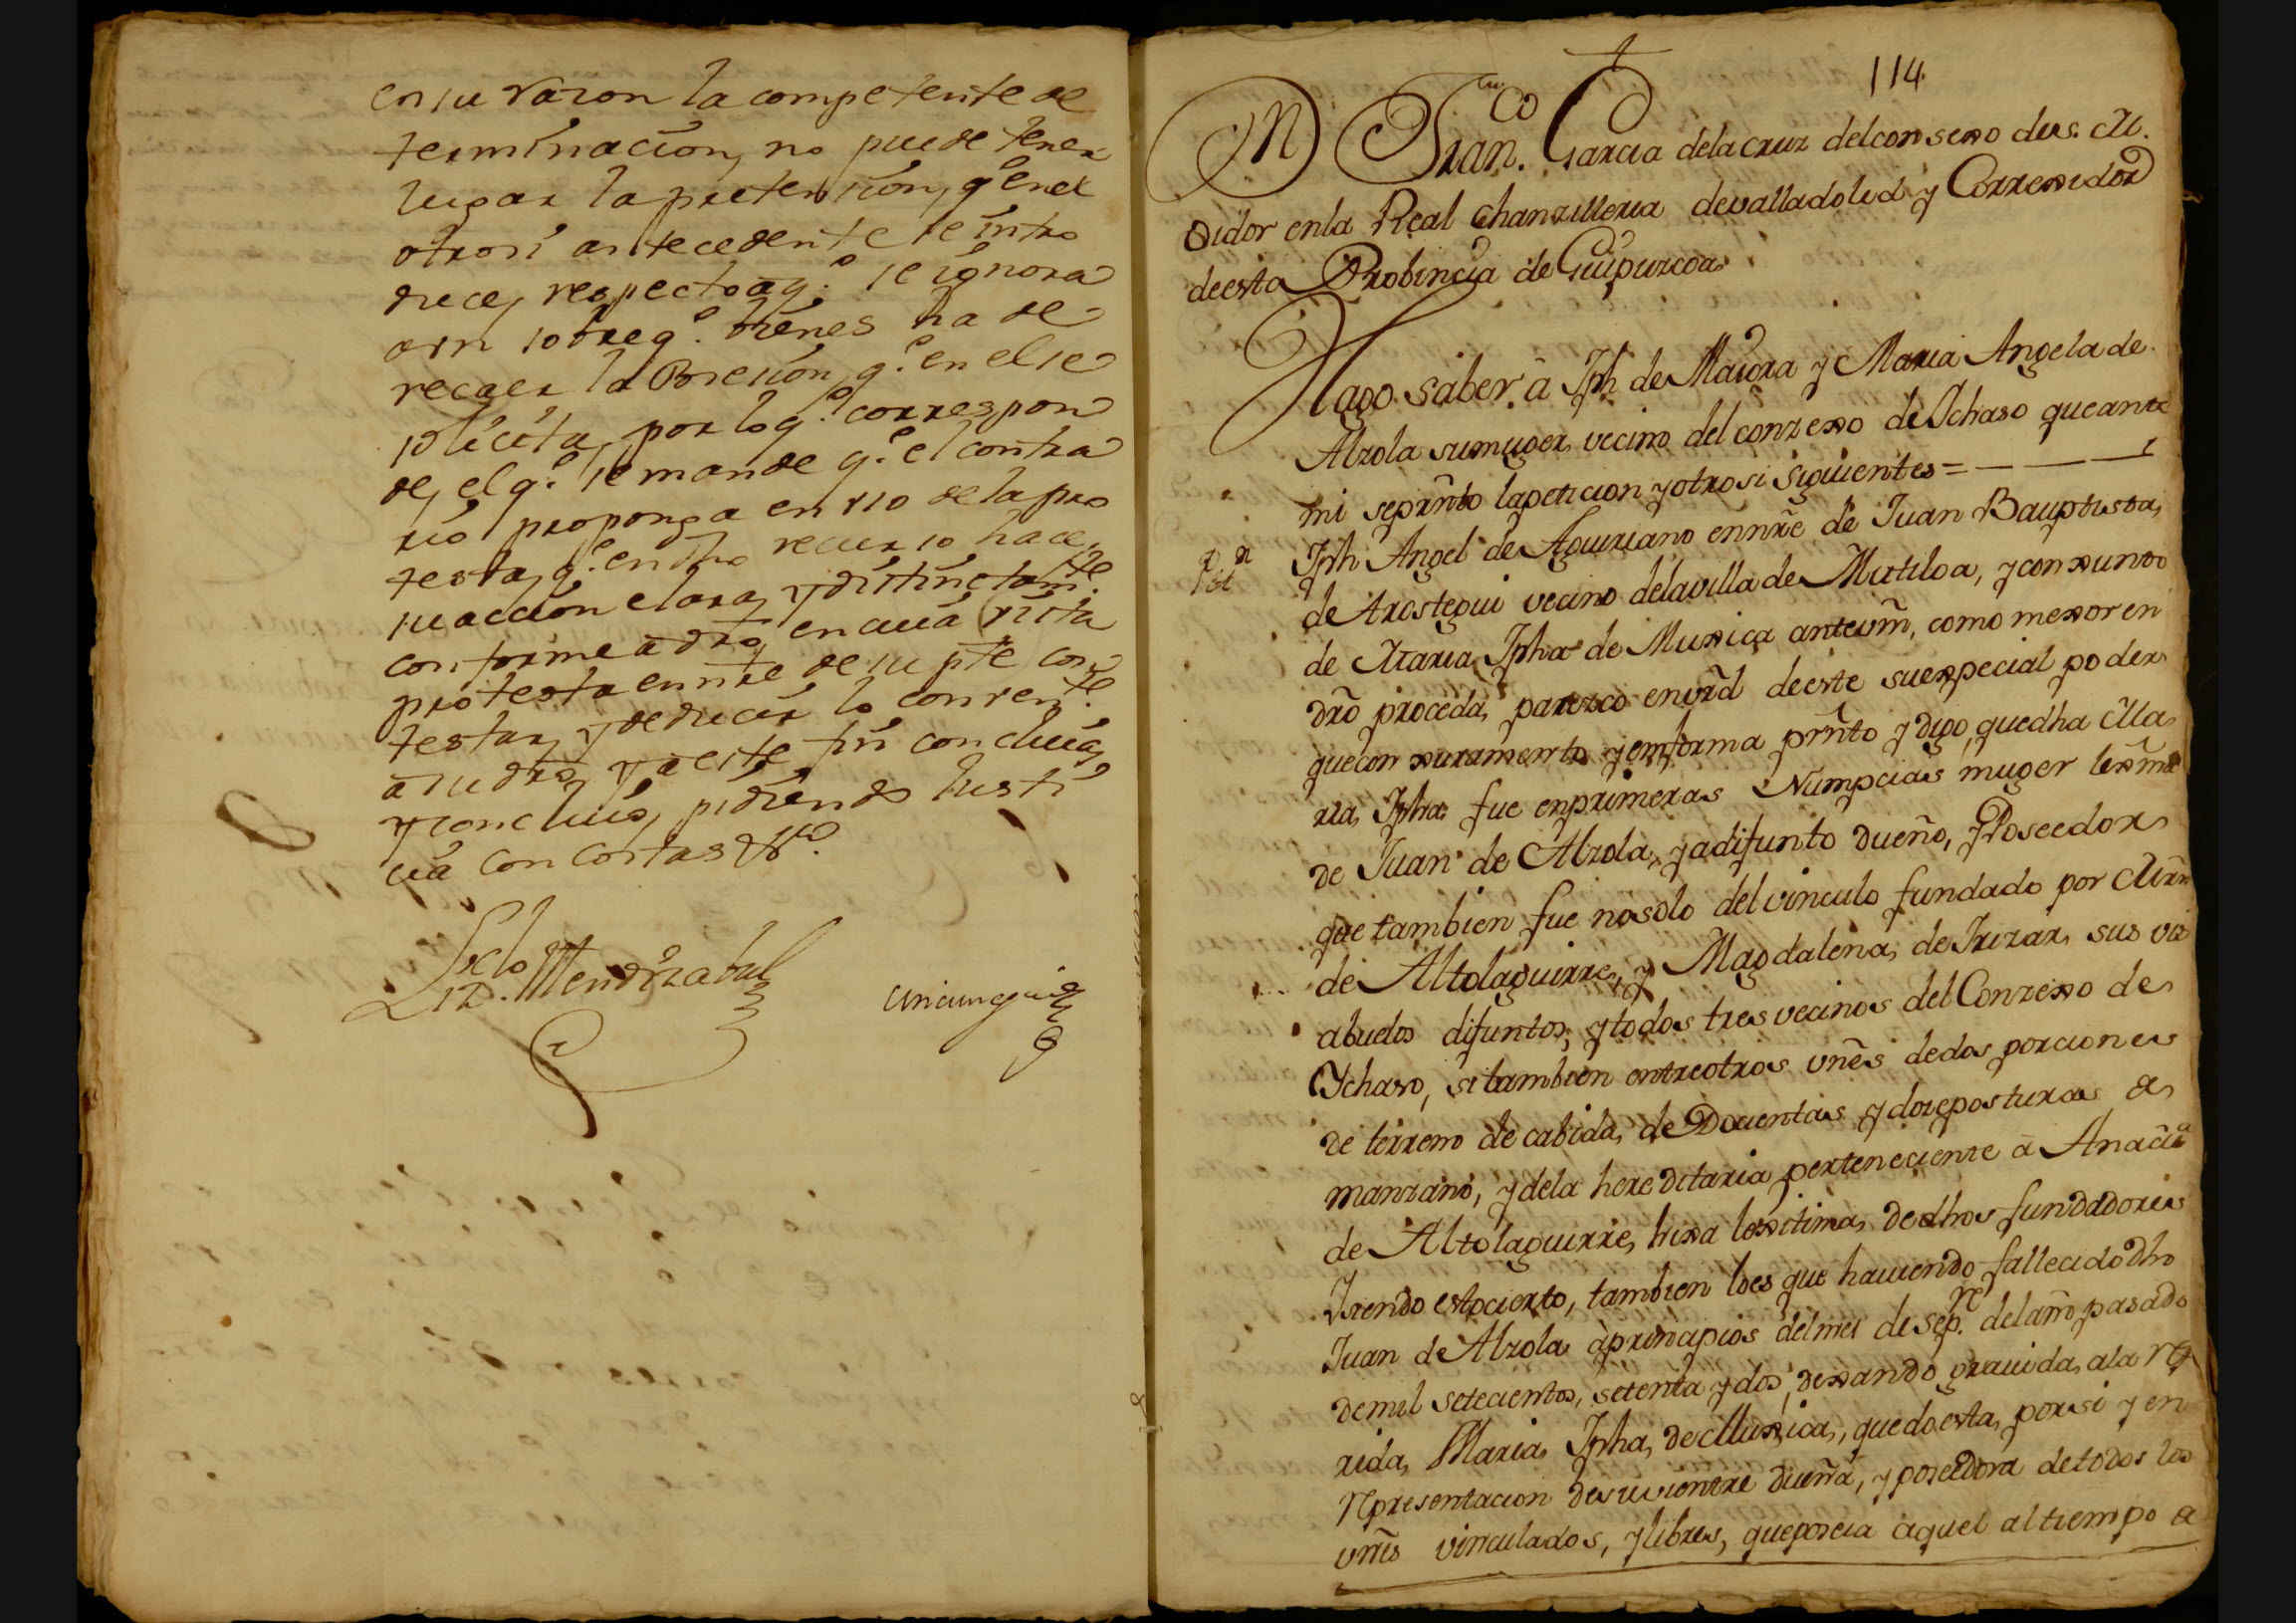 en su razon la competente de
terminacion, no puede tener
lugar la pretension, q.e en el
otrosi antecedente se intro
duce, respecto a q.e se ignora
aun sobre q.e vienes ha de
recaer la Posesion q.e en el se
solicita, por lo q.e correspon
de, el q.e se mande q.e el contra
rio proponga en vso de la pro
testa, q.e en dho recurso hace,
su accion clara, y distinctam.te
conforme a dro, en cuia vista
protesta en nre de su pte con
testar, y deducir lo conven.te
a su dro, y a este fin concluia,
y concluio, pidiendo Justi
cia con costas &.a
Liz.do Mendizabal
114
D.n Fran.co Garcia dela Cruz del consexo de s. M.
Oidor en la Real Chanzilleria de valladolid y Correxidor
de esta Probincia de Guipuzcoa
Hago saber à Jph de Maiora y Maria Angela de
Alzola su muger vecino del conzexo de Ichaso que ante
mi se prñto la peticion y otrosi siguientes =
Pet.n
Jph Angel de Aguiriano en nrẽ de Juan Bauptista
de Arostegui vecino de la villa de Mutiloa, y conxunto
de Maria Jpha de Muxica ante vm̃, como mexor en
drõ proceda, parezco en vrd̃ de este su expecial poder
que con xuramento y en forma prñto y digo, que dha Ma
ria Jpha fue en primeras Numpcias muger lexma
de Juan de Alzola, ya difunto dueño, y Poseedor
que tambien fue no solo del vinculo fundado por Mrñ
de Altolaguirre, y Magdalena de Irizar, sus vis
abuelos difuntos, y todos tres vecinos del Conzexo de
Ychaso, si tambien entre otros vnẽs de dos porciones
de terreno de cabida de Docientas y doze posturas de
manzano, y de la hereditaria perteneciente à Ana M.a
de Altolaguirre, hixa lexitima de dhos fundadores
Siendo esto cierto, tambien lo es que haviendo fallecido dho
Juan de Alzola à principios del mes de sep.re del año pasado
de mil setecientos, setenta y dos, dexando gravida a la re
rida Maria Jpha de Muxica, quedo esta por si y en
representacion de su vientre dueña, y poseedora de todos los
vnẽs vinculados, y libres, que poseia aquel al tiempo de